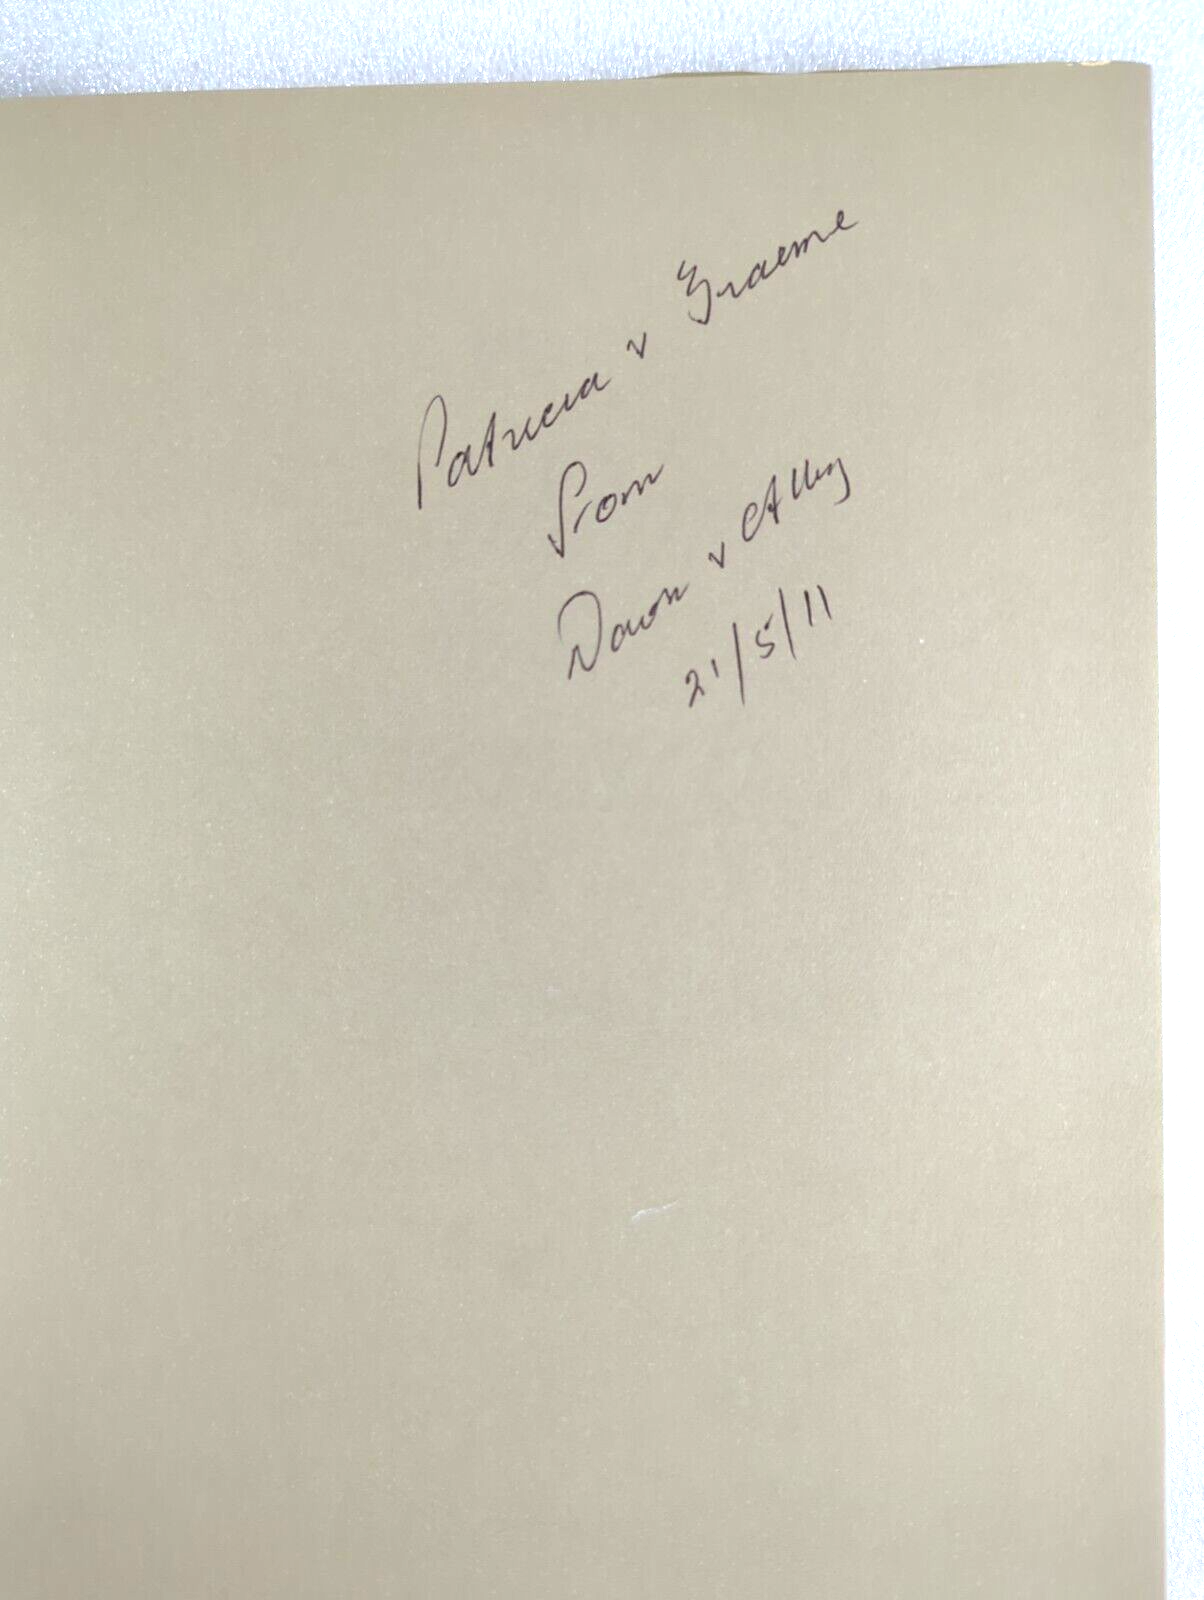 Patricia v Graeme
from
Dawn v
21/5/11